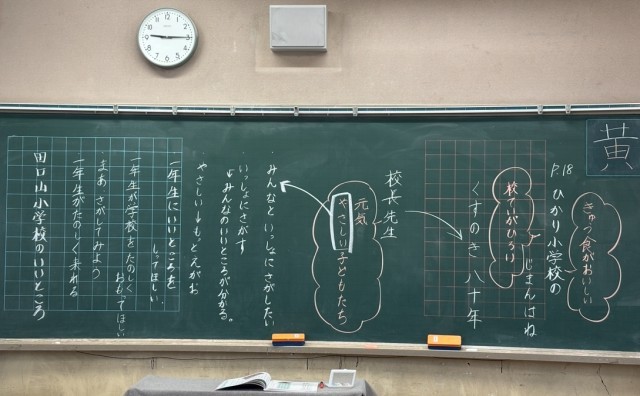 黄
きゅう食がおいしい
P.18 ひかり小学校の
じまんはね
校ていがひろい
くすのき 八十年
校長先生
元気
やさしい子どもたち
・みんなと いっしょにさがしたい
・いっしょにさがす
↓みんなのいいところが分かる。
やさしい→もっとえがお
一年生にいいところを
しってほしい
一年生が学校をたのしく
おもってほしい
まあ さがしてみよう
一年生がたのしく来れる
田口山小学校のいいところ